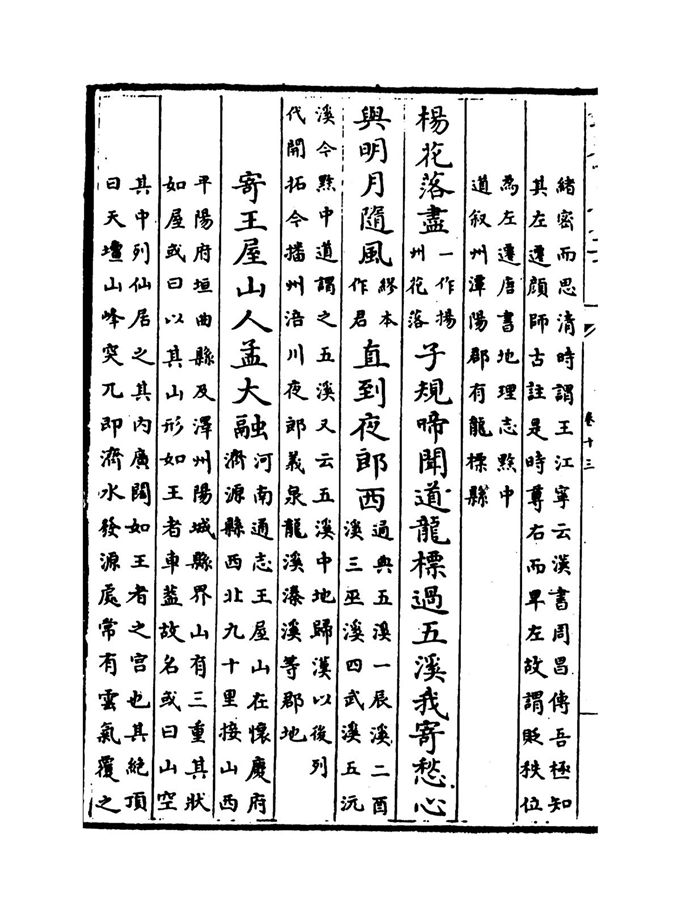 卷十三
緒密而思清時謂王江寧云漢書周昌傳吾極知
其左遷顔師古註是時尊右而卑左故謂貶秩位
為左遷唐書地理志黔中
道叙州潭陽郡有龍標縣
楊花落盡一作揚州花落子規啼聞道龍標過五溪我寄愁心
與明月隨風繆本作君直到夜郎西通典五溪一辰溪二酉溪三巫溪四武溪五沅
溪今黔中道謂之五溪又云五溪中地歸漢以後列
代開拓今播州涪川夜郎義泉龍溪溱溪等郡地
寄王屋山人孟大融河南通志王屋山在懷慶府濟源縣西北九十里接山西
平陽府垣曲縣及澤州陽城縣界山有三重其狀
如屋或曰以其山形如王者車葢故名或曰山空
其中列仙居之其内廣闊如王者之宮也其絶頂
曰天壇山峰突兀即濟水發源處常有雲氣覆之